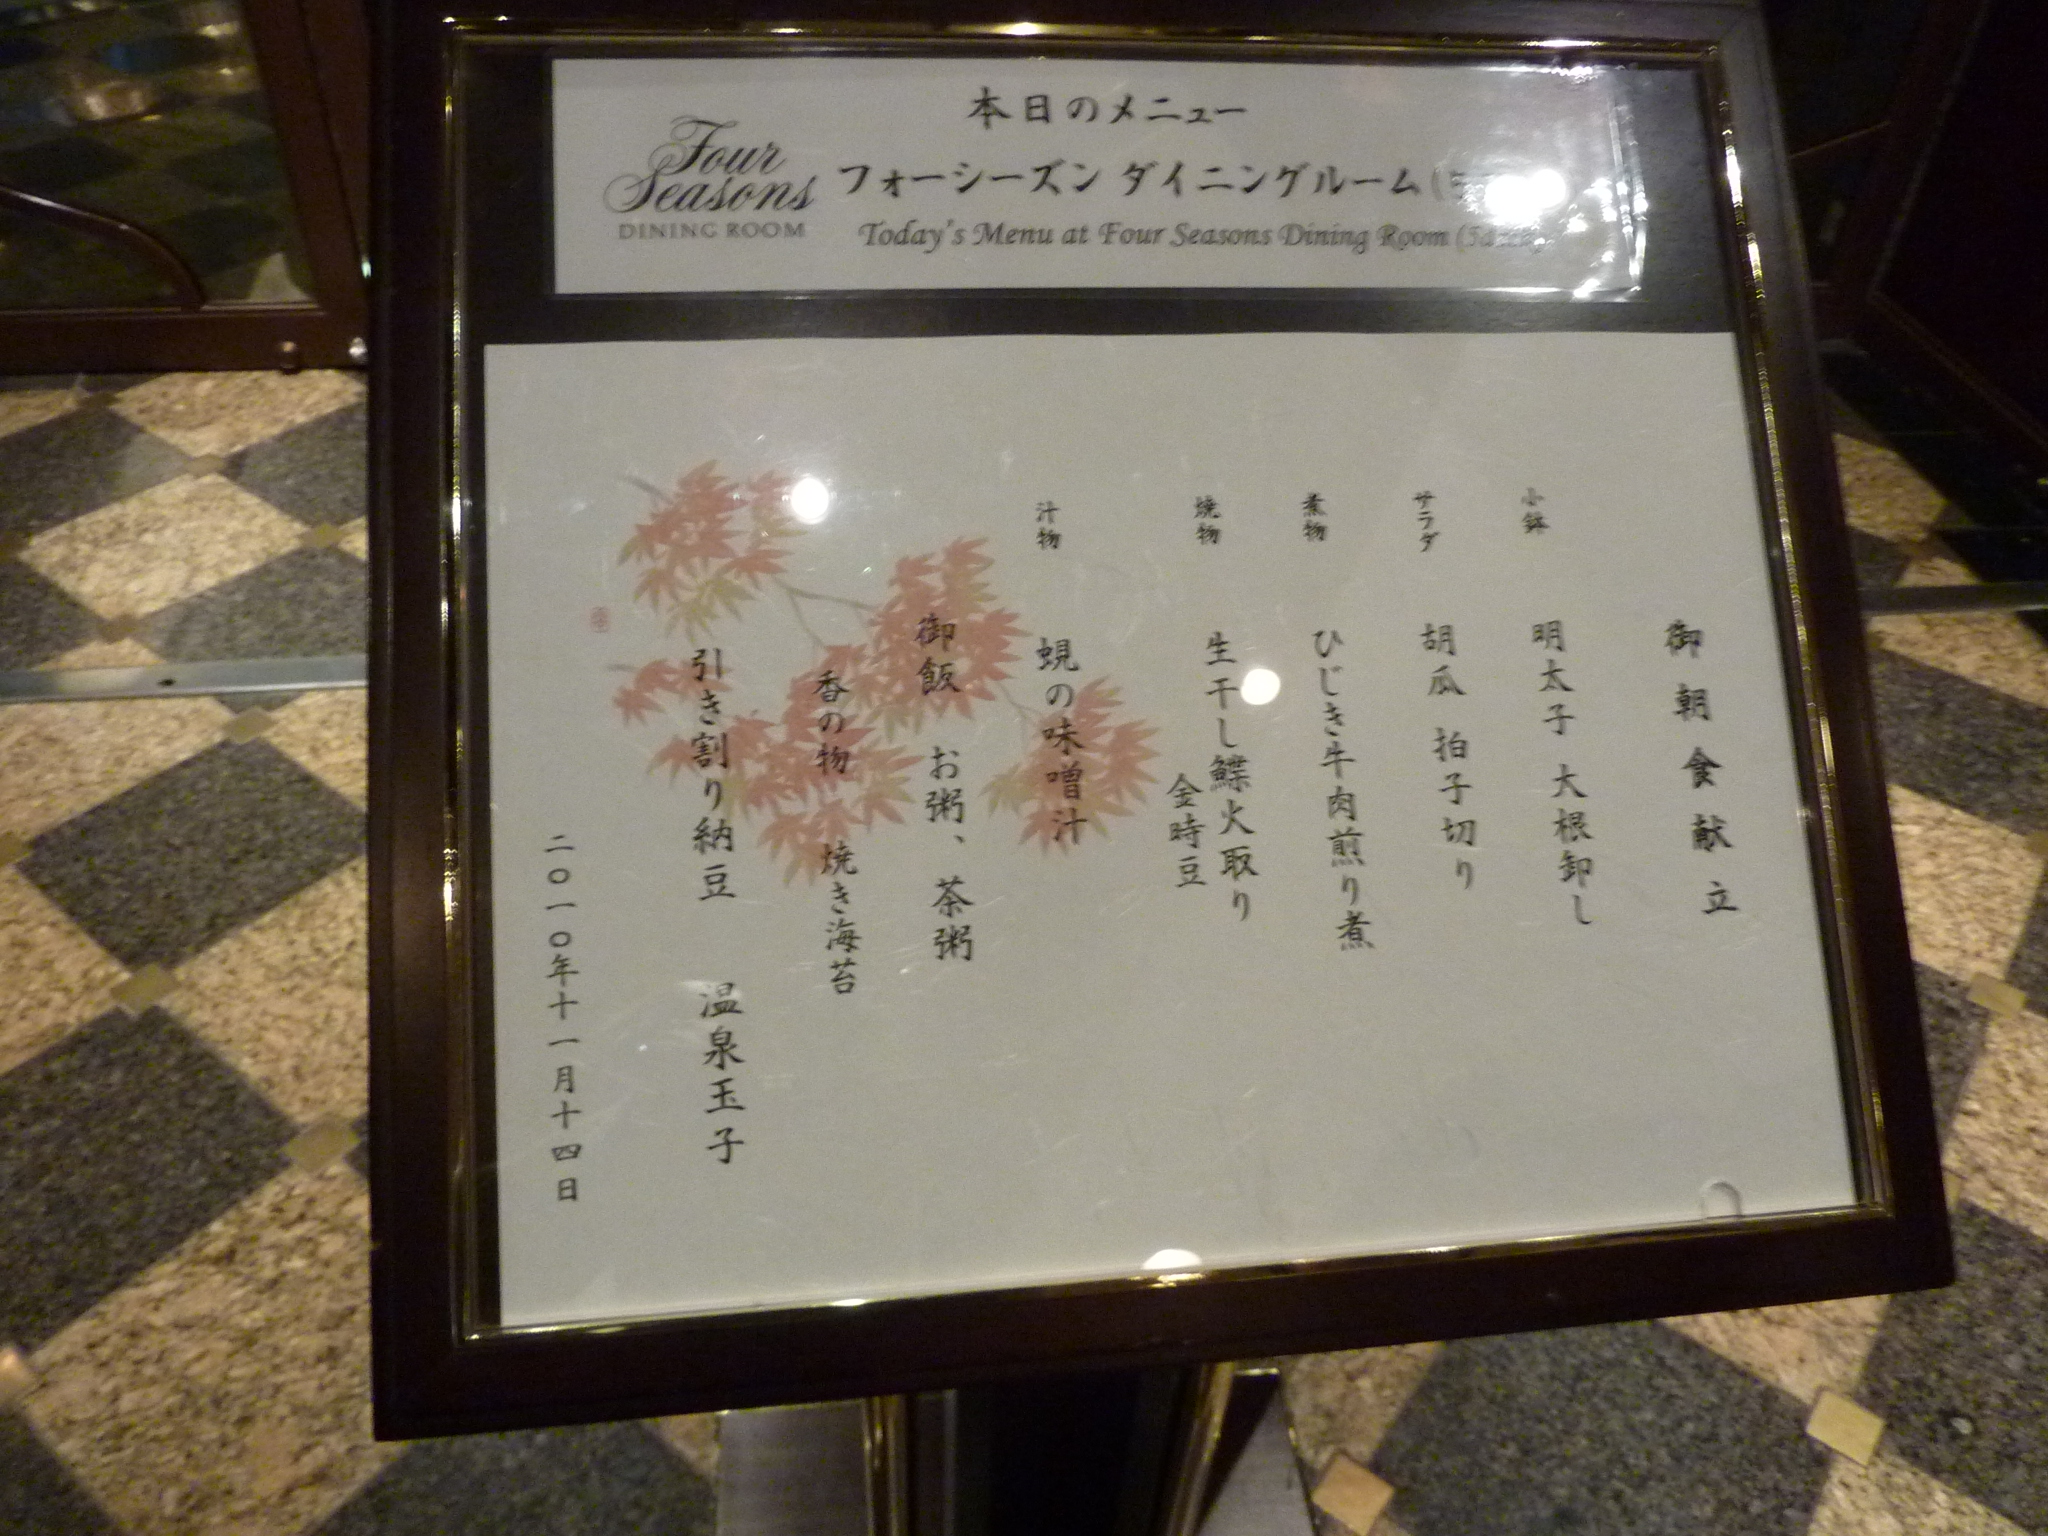 本日のメニュー
Four
Seasons
DINING ROOM
フォーシーズン ダイニングルーム
Today's Menu at Four Seasons Dining Room
御朝食献立
小鉢 明太子 大根卸し
サラダ 胡瓜 拍子切り
煮物 ひじき牛肉煎り煮
焼物 生干し鰈火取り
金時豆
汁物 蜆の味噌汁
御飯 お粥、茶粥
香の物 焼き海苔
引き割り納豆 温泉玉子
二〇一〇年十一月十四日